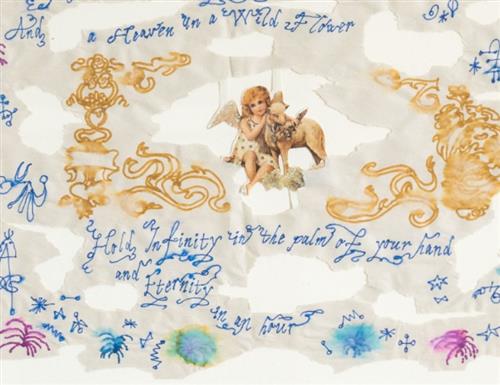 And a Heaven in a Wild Flower
Hold Infinity in the palm of your hand
and
Eternity
in an hour